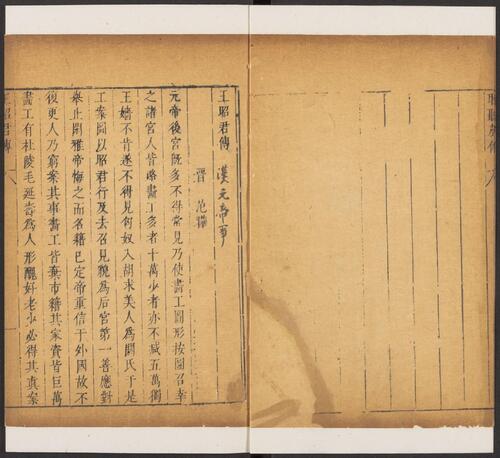 王昭君傳 漢元帝事
晉 范曄
元帝後宮既多不得常見乃使畫工圖形按圖召幸
之諸宮人皆賂畫工多者十萬少者亦不減五萬獨
王嬙不肯遂不得見匈奴入朝求美人為閼氏于是
上案圖以昭君行及去召見貌為后宮第一善應對
舉止閑雅帝悔之而名籍已定帝重信于外國故不
復更人乃窮案其事畫工皆棄市籍其家資皆巨萬
畫工有杜陵毛延壽為人形醜好老少必得其真案
王昭君傳